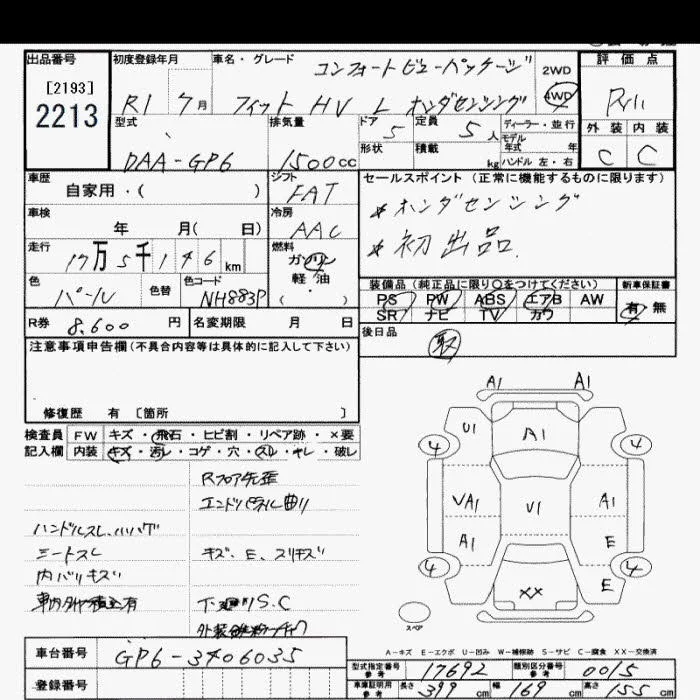 出品番号
[2193]
2213
初度登録年月
R1 7月
車名・グレード
コンフォートビューパッケージ
フィット HV L ホンダセンシング
2WD
4WD
評価点
外装 内装
C C
型式
DAA-GP6
排気量
1500cc
ドア 5
定員 5人
ディーラー・並行
モデル年式 年
形状
積載 kg
ハンドル 左・右
車歴
自家用・( )
シフト
FAT
セールスポイント (正常に機能するものに限ります)
*ホンダセンシング
*初出品.
車検
年 月( 日)
冷房
AAC
走行
17万5千146km
燃料
ガソリン
軽油
( ・ )
色
パール
色替
色コード
NH883P
装備品(純正品に限り○をつけてください)
PS PW ABS エアB AW
SR ナビ TV カワ
新車保証書
有 無
R券 8,600 円
名変期限 月 日
後日品
取
注意事項申告欄(不具合内容等は具体的に記入して下さい)
修復歴 有 [箇所 ]
検査員
記入欄
FW キズ・飛石・ヒビ割・リペア跡・×要
内装 キズ・汚レ・コゲ・穴・スレ・ヤレ・破レ
Rフロア先歪
エンドパネル曲り
ハンドルスレ、ハハゲ
シートスレ
キズ、E、スリキズ
内バリキズ
S.C
A1 A1
U1 A1
4 4
VA1 U1 A1
A1 E
4 4
XX E
スペア
A-キズ E-エクボ U-凹み W-補修跡 S-サビ C-腐食 XX-交換済
車台番号
GP6-3406035
登録番号
型式指定番号 参考 17692
類別区分番号 参考 0015
車庫証明用 参考 長さ 399 cm 幅 169 cm 高さ 155 cm